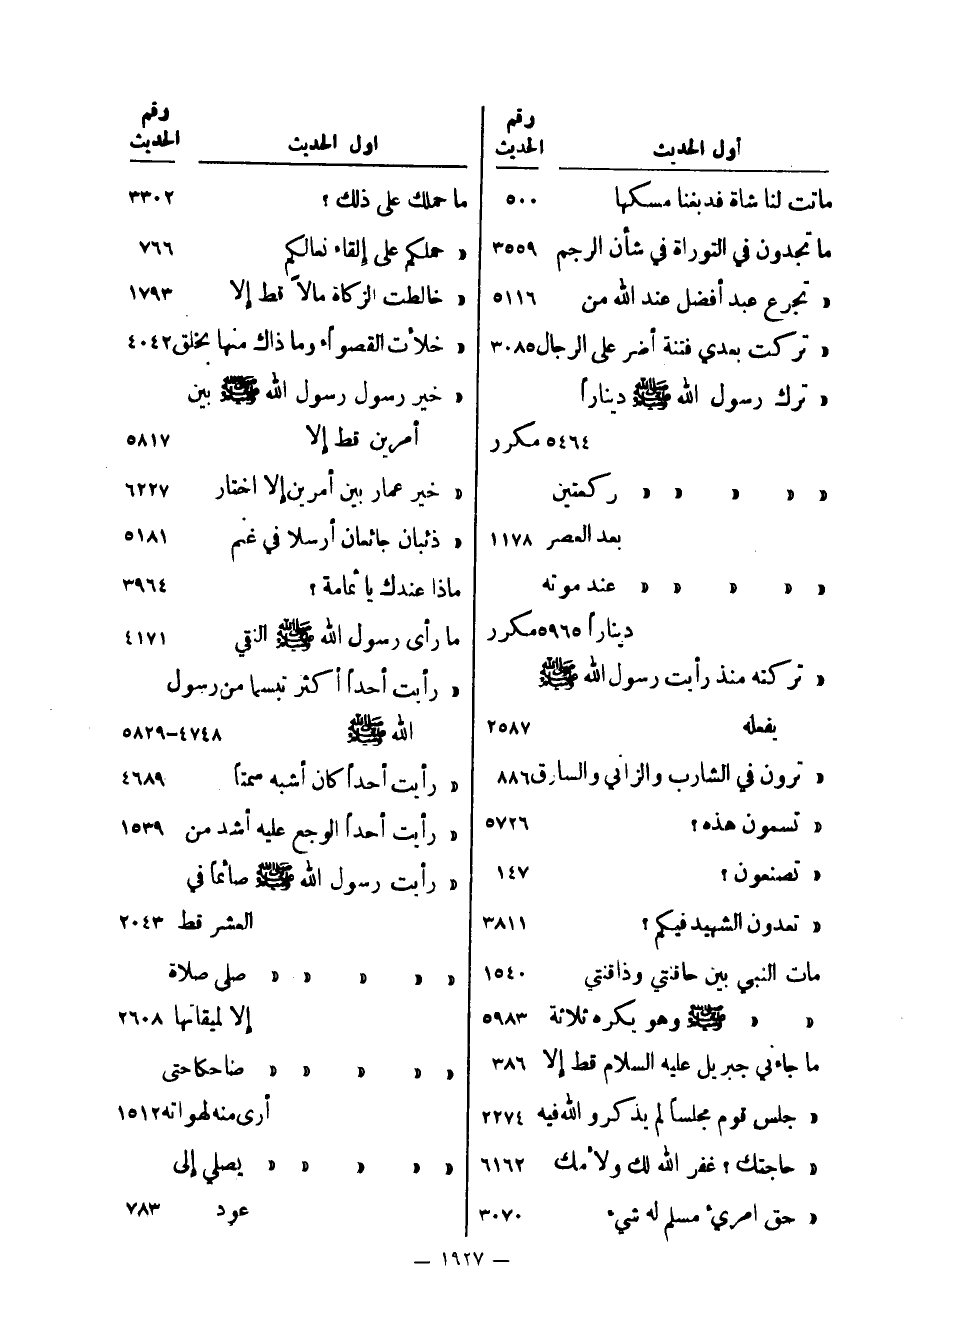 أول الحديث رقم الحديث
ماتت لنا شاة فدبغنا مسكها ٥٠٠
ما تجدون في التوراة في شأن الرجم ٣٥٥٩
« تجرع عبد أفضل عند الله من ٥١١٦
« تركت بعدي فتنة أضر على الرجال ٣٠٨٥
« ترك رسول الله ﷺ ديناراً
٥٤٦٤ مكرر
« « « « « ركعتين
بعد العصر ١١٧٨
« « « « « عند موته
ديناراً ٥٩٦٥ مكرر
« تركته منذ رأيت رسول الله ﷺ
يفعله ٢٥٨٧
« ترون في الشارب والزاني والسارق ٨٨٦
« تسمون هذه ؟ ٥٧٢٦
« تصنعون ؟ ١٤٧
« تعدون الشهيد فيكم ؟ ٣٨١١
مات النبي بين حاقنتي وذاقنتي ١٥٤٠
« « ﷺ وهو يكره ثلاثة ٥٩٨٣
ما جاءني جبريل عليه السلام قط إلا ٣٨٦
« جلس قوم مجلساً لم يذكروا الله فيه ٢٢٧٤
« حاجتك ؟ غفر الله لك ولأمك ٦١٦٢
« حق امرئ مسلم له شيء ٣٠٧٠
اول الحديث رقم الحديث
ما حملك على ذلك ؟ ٣٣٠٢
« حملكم على إلقاء نعالكم ٧٦٦
« خالطت الزكاة مالاً قط إلا ١٧٩٣
« خلأت القصواء وما ذاك منها بخلق ٤٠٤٢
« خير رسول رسول الله ﷺ بين
أمرين قط إلا ٥٨١٧
« خير عمار بين أمرين إلا اختار ٦٢٢٧
« ذئبان جائعان أرسلا في غنم ٥١٨١
ماذا عندك يا ثمامة ؟ ٣٩٦٤
ما رأى رسول الله ﷺ النقي ٤١٧١
« رأيت أحداً أكثر تبسما من رسول
الله ﷺ ٤٧٤٨-٥٨٢٩
« رأيت أحداً كان أشبه سمتاً ٤٦٨٩
« رأيت أحداً الوجع عليه أشد من ١٥٣٩
« رأيت رسول الله ﷺ صائماً في
العشر قط ٢٠٤٣
« « « « « صلى صلاة
إلا لميقاتها ٢٦٠٨
« « « « « ضاحكا حتى
أرى منه لهواته ١٥١٢
« « « « « يصلي إلى
عود ٧٨٣
— ١٩٢٧ —